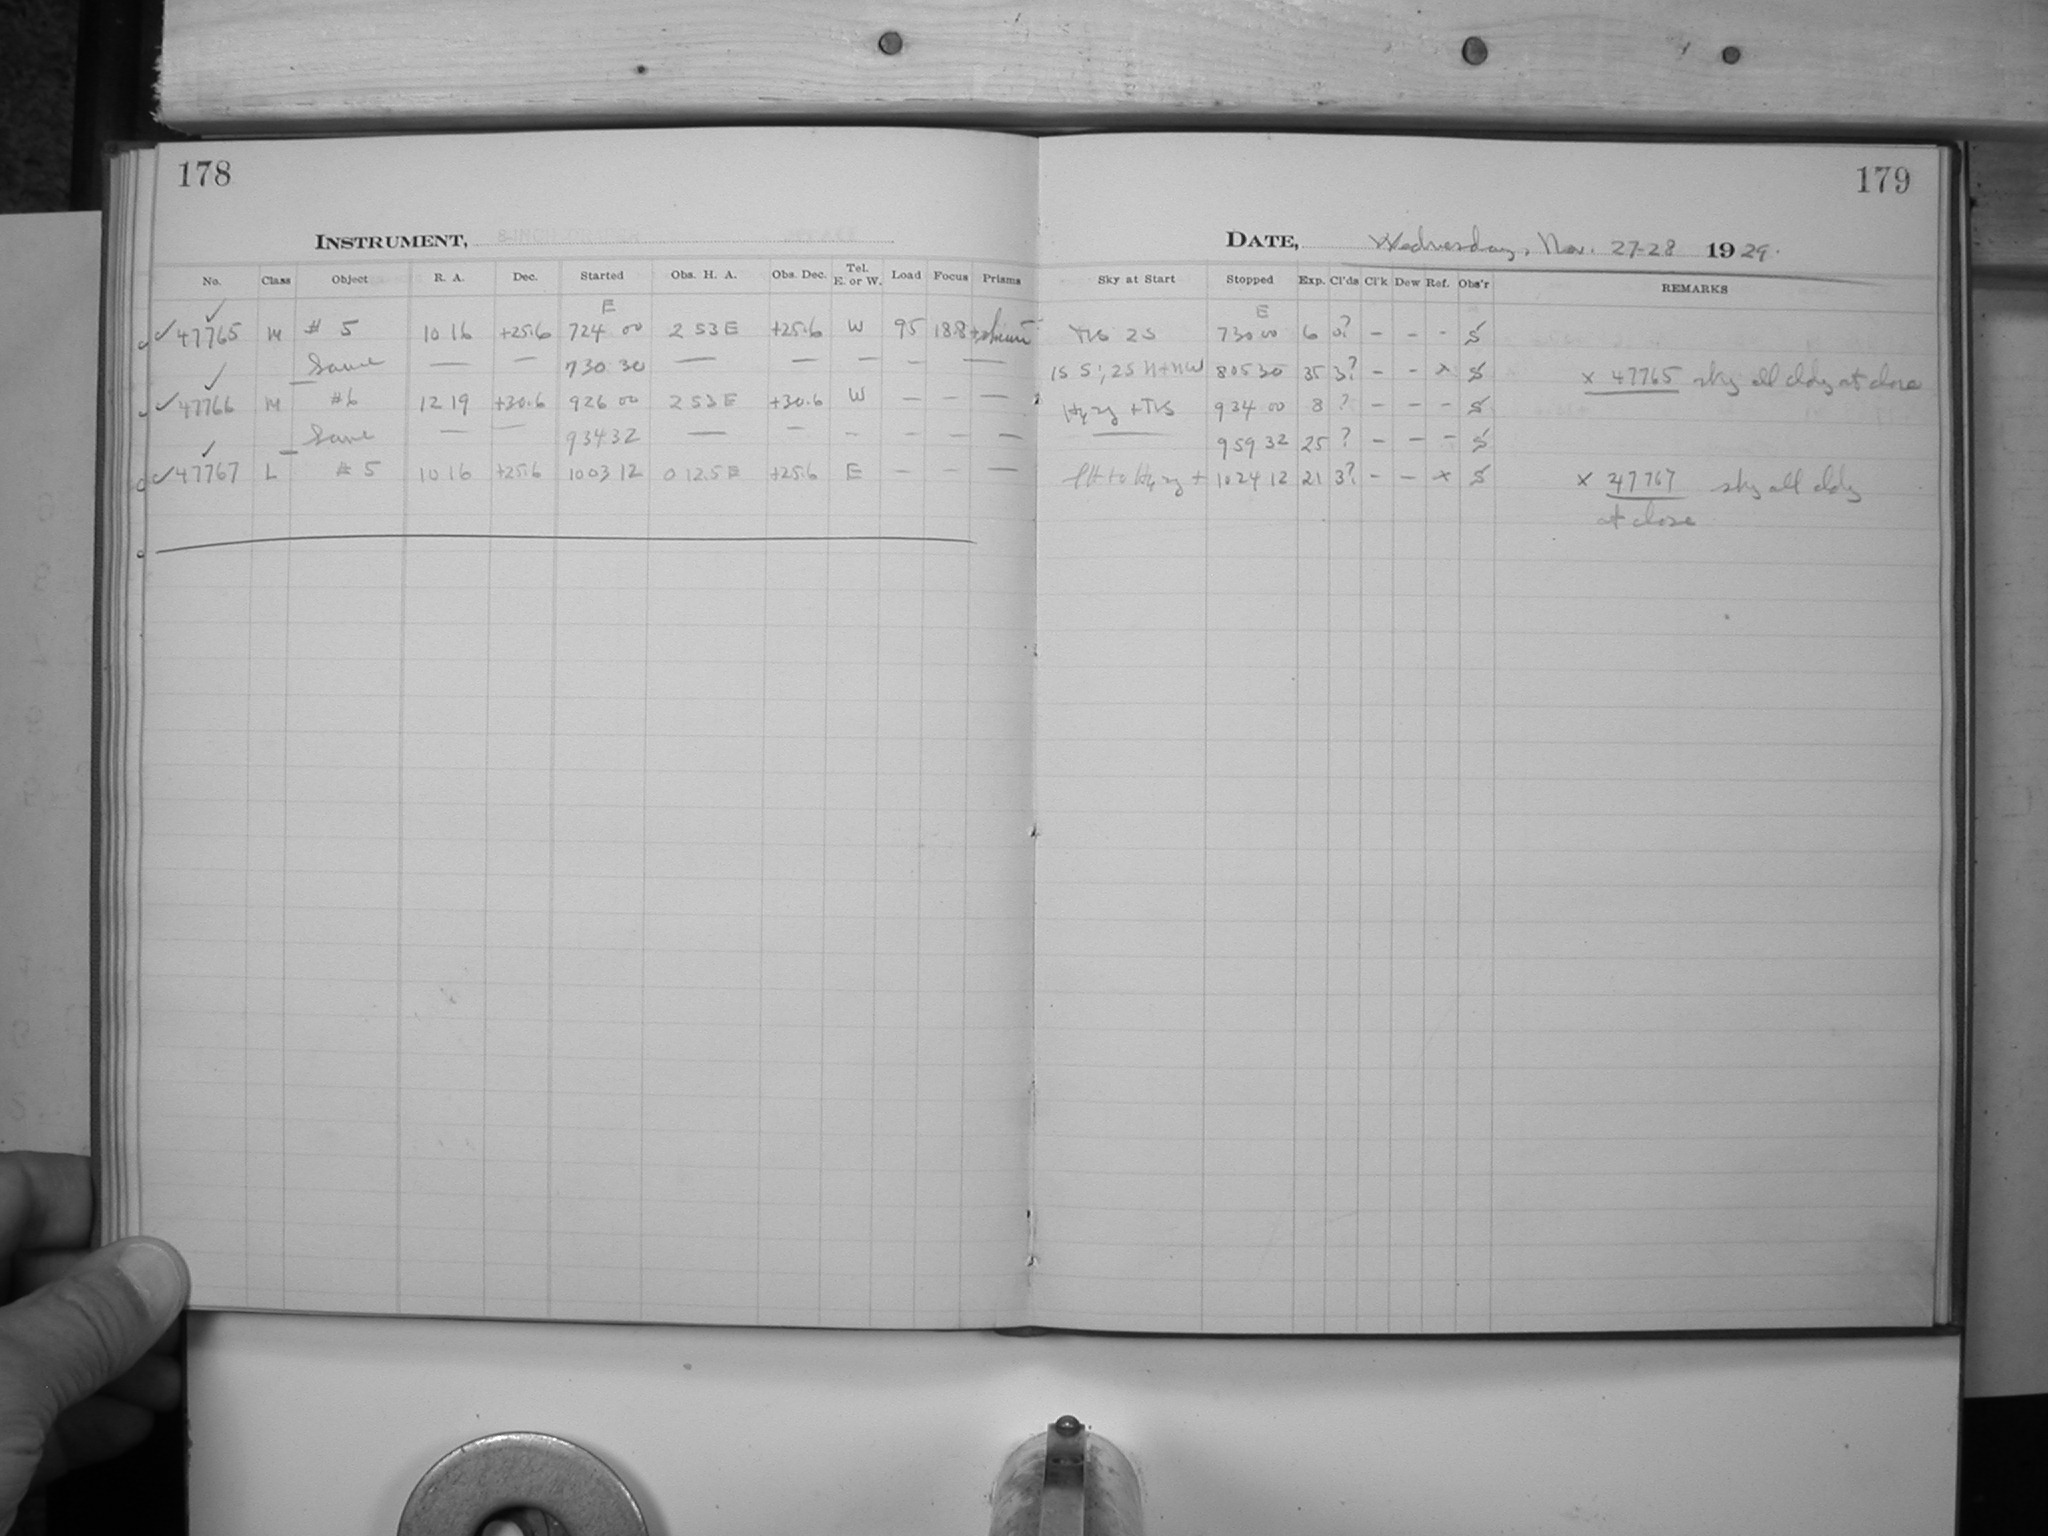 178
INSTRUMENT,
No. Class Object R. A. Dec. Started Obs. H. A. Obs. Dec. Tel. E. or W. Load Focus Prisms
E
✓ 47765 M # 5 10 16 +25.6 724 00 2 53 E +25.6 W 95 18.8
Same — — 730 30 — — — — — —
✓ 47766 M #6 12 19 +30.6 926 00 2 53 E +30.6 W — — —
Same — — 934 32 — — — — — —
✓ 47767 L # 5 10 16 +25.6 1003 12 0 12.5 E +25.6 E — — —
179
DATE, Wednesday, Nov. 27-28 1929.
Sky at Start Stopped Exp. Cl'ds Cl'k Dew Ref. Obs'r REMARKS
E
2S 730 00 6 0? - - - S
1S S; 2S N+NW 805 30 35 3? - - x S x 47765 sky all cldy at close
Hyzy + 934 00 8 ? - - - S
959 32 25 ? - - - S
to Hyzy + 1024 12 21 3? - - x S x 47767 sky all cldy
at close